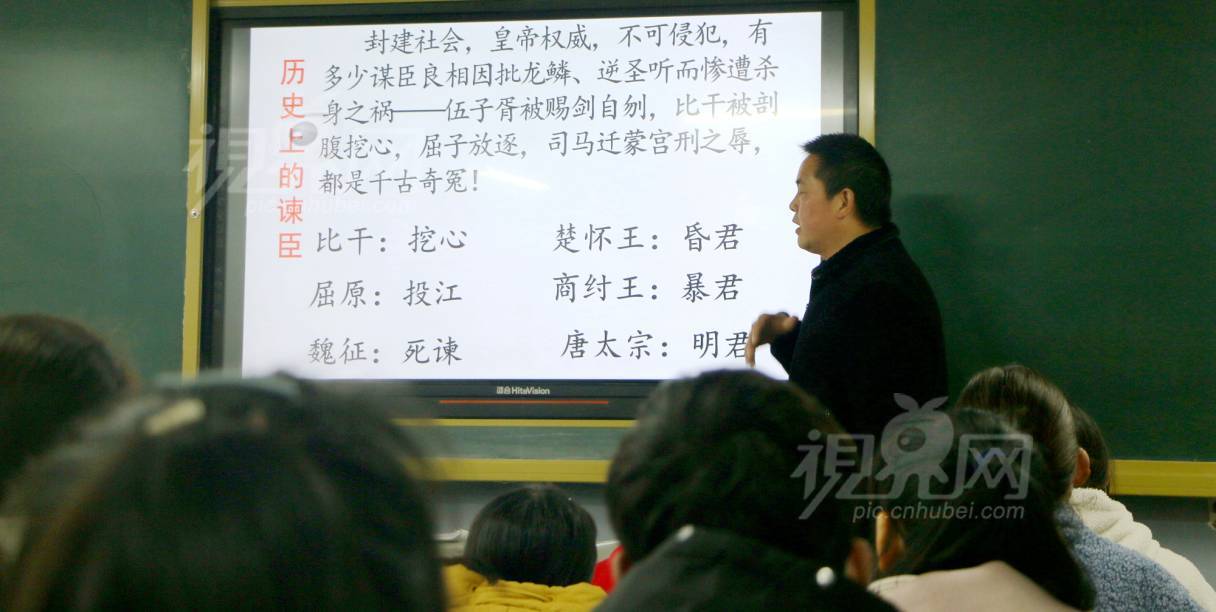 历史上的谏臣
封建社会，皇帝权威，不可侵犯，有
多少谋臣良相因批龙鳞、逆圣听而惨遭杀
身之祸——伍子胥被赐剑自刎，比干被剖
腹挖心，屈子放逐，司马迁蒙宫刑之辱，
都是千古奇冤！
比干：挖心 楚怀王：昏君
屈原：投江 商纣王：暴君
魏征：死谏 唐太宗：明君
HiteVision
视界网
pic.cnhubei.com
视界网
pic.cnhubei.com